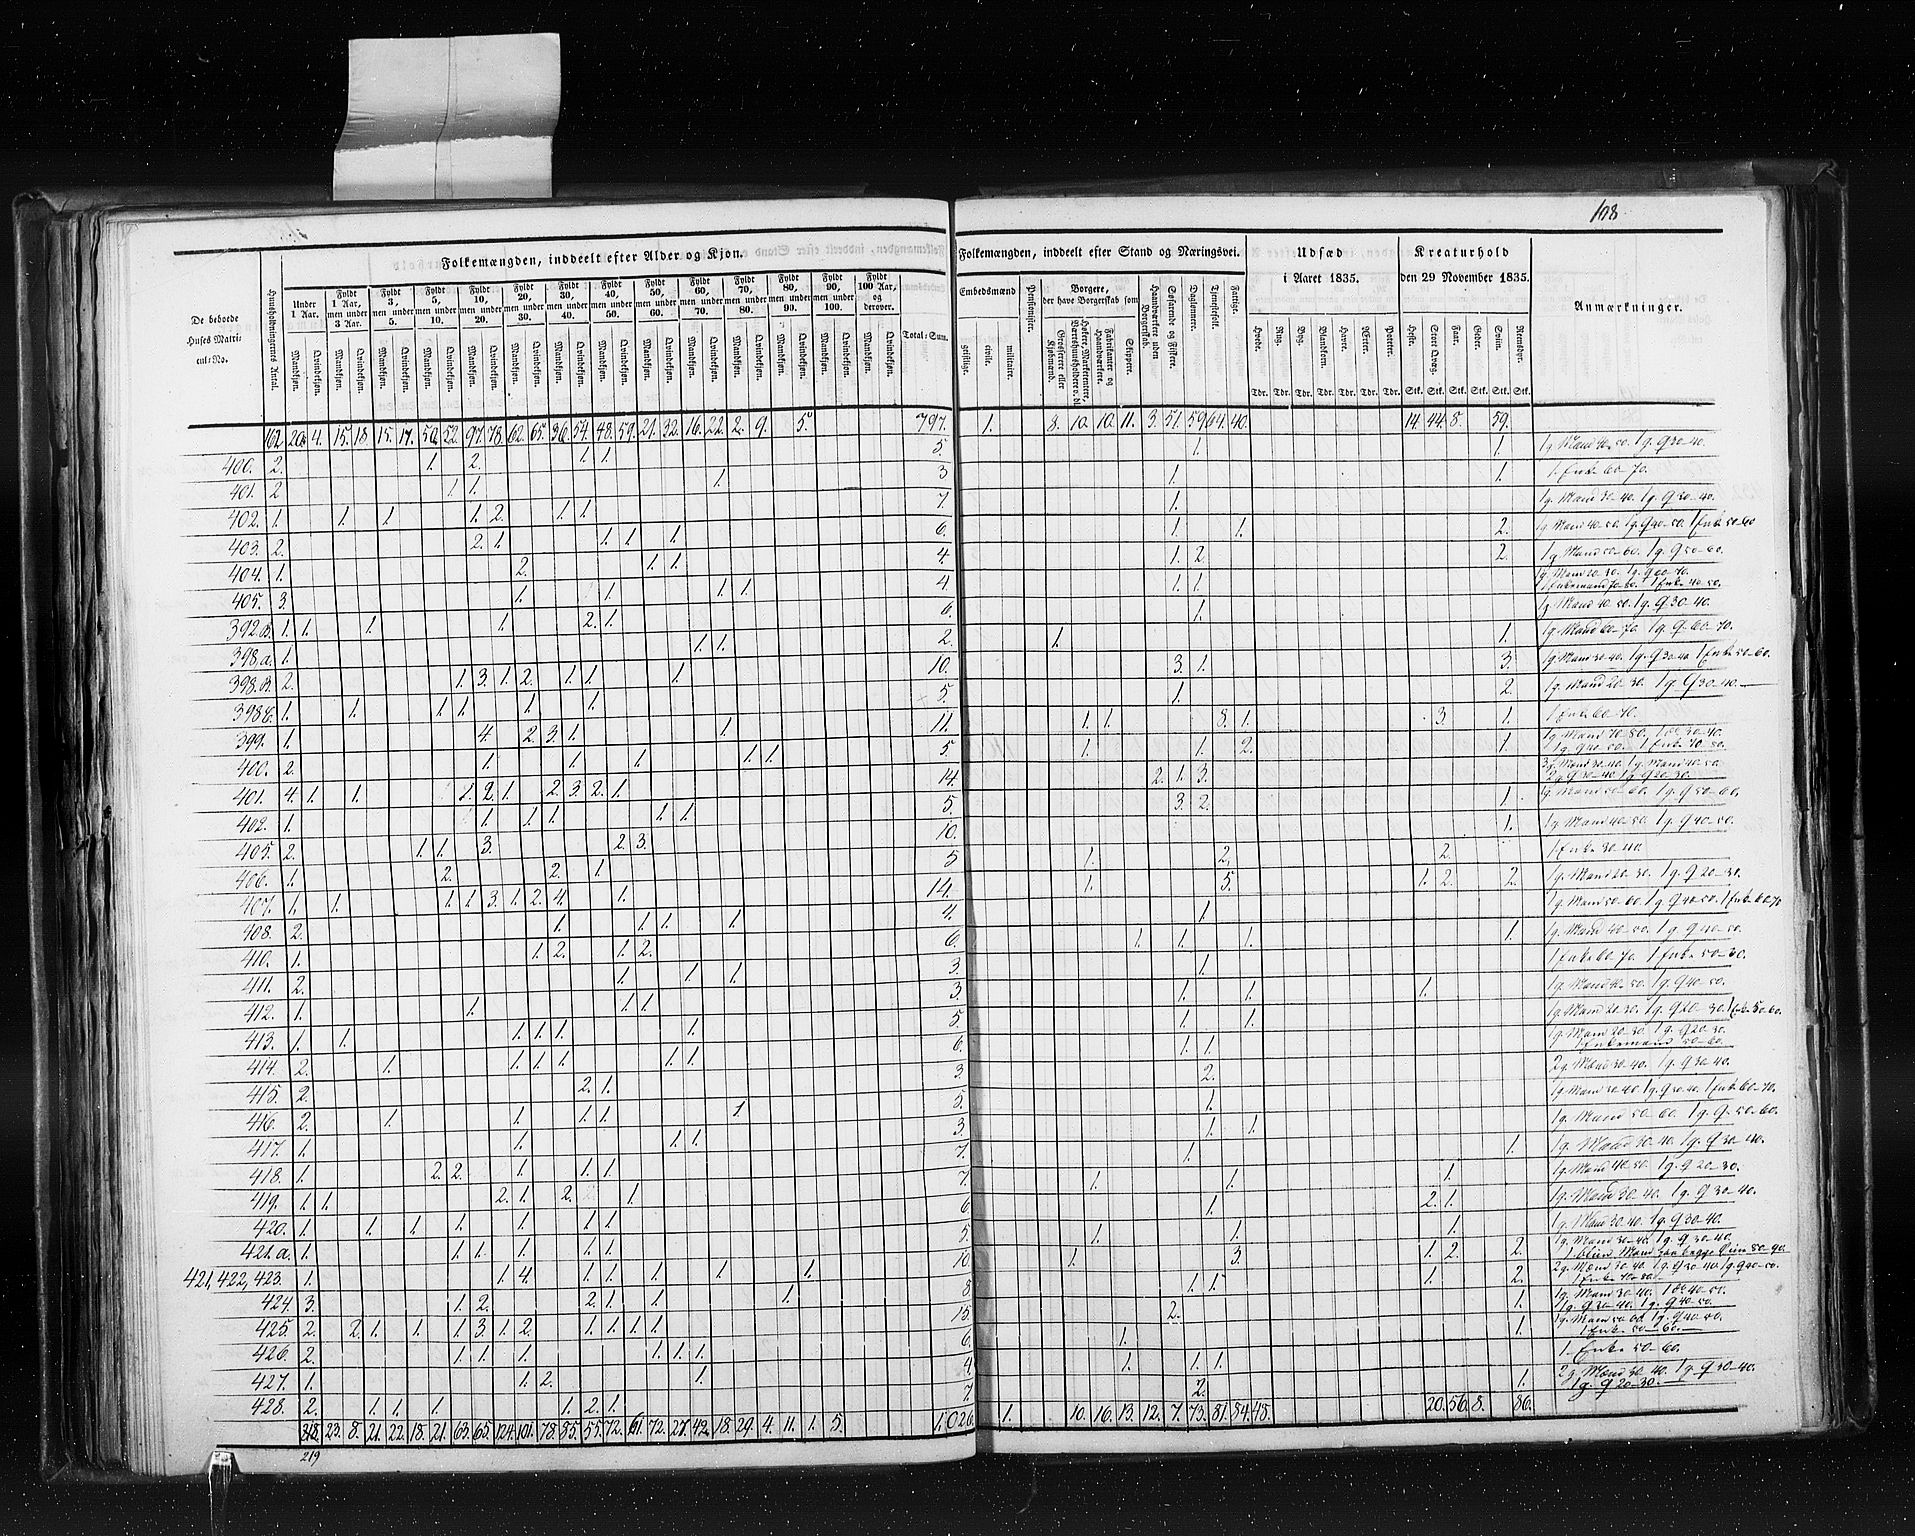 108
Folkemængden, inddeelt efter Alder og Kjøn.
De beboede
Huses Matri-
cul-No.
Huusholdningernes Antal.
Under 1 Aar.
Fyldt 1 Aar, men under 3 Aar.
Fyldt 3, men under 5.
Fyldt 5, men under 10.
Fyldt 10, men under 20.
Fyldt 20, men under 30.
Fyldt 30, men under 40.
Fyldt 40, men under 50.
Fyldt 50, men under 60.
Fyldt 60, men under 70.
Fyldt 70, men under 80.
Fyldt 80, men under 90.
Fyldt 90, men under 100.
Fyldt 100 Aar, og derover.
Mandkjøn. Qvindekjøn.
Total-Sum.
162. 20. 4. 15. 18. 15. 17. 50. 52. 97. 78. 62. 65. 36. 54. 48. 59. 21. 32. 16. 22. 2. 9. 5. 797.
400. 2. 1. 2. 1. 1. 5.
401. 2 1. 1. 1. 3
402. 1. 1. 1 1. 2. 1. 1. 7.
403. 2. 2. 1. 1. 1. 1. 6.
404. 1. 2. 1. 1. 4.
405. 3. 1. 1. 1. 1. 4
392.B. 1. 1. 1. 1. 2. 1. 6.
398,a. 1. 1. 1. 2.
398.B. 2. 1. 3. 1. 2. 1. 1. 1. 10.
398C. 1. 1. 1. 1. 1. 1. 5.
399. 1. 4. 2. 3. 1. 1. 11.
400. 2. 1. 1. 1. 1. 1. 5.
401. 4. 1. 1. 1. 2. 1. 2. 3. 2. 1. 14.
402. 1. 1. 1. 1. 1. 1. 5.
405. 2. 1. 1. 3. 2. 3. 10.
406. 1. 2. 2. 1. 5
407. 1. 1. 1. 1. 3. 1. 2. 4. 1. 14.
408. 2. 1. 1. 1. 1. 4.
410. 1. 1. 2. 1. 2. 6.
411. 2. 1. 1. 1. 3.
412. 1. 1. 1. 1. 3.
413. 1. 1. 1. 1. 1. 1. 5.
414. 2. 1. 1. 1. 1. 1. 1. 6.
415. 2. 2. 1. 3.
416. 2. 1. 1. 1. 1. 1. 5.
417. 1. 1. 1. 1. 3.
418. 1. 2. 2. 1. 1. 1. 7.
419. 1. 1. 2. 1. 2. 1. 7.
420. 1. 1. 1. 1. 1. 1. 1. 6.
421.a. 1. 1. 1. 1. 1. 1. 5.
421, 422, 423. 1. 1. 4. 1. 1. 1. 1. 1. 10.
424. 3. 1. 2. 2. 1. 1. 1. 8
425. 2. 2. 1. 1. 1. 3. 1. 2. 1. 1. 1. 1. 15.
426. 2. 1. 1. 1. 1. 1. 1. 6.
427. 1. 1. 2. 1. 4.
428. 2. 1. 1. 1. 1. 2. 1. 7.
218. 23. 8. 21. 22. 18. 21. 63. 65. 124. 101. 78. 85. 55. 72. 61. 72. 27. 42. 18. 29. 4. 11. 1. 5. 1,026.
219
Folkemængden, inddeelt efter Stand og Næringsvei.
Embedsmænd
geistlige. civile. militaire.
Pensionister.
Borgere,
der have Borgerskab som
Grosserere eller Kjøbmænd.
Høkere, Marketentere, Værtshuusholdere o. dl.
Fabrikanter og Haandværkere.
Skippere.
Haandværkere uden Borgerskab.
Søfarende og Fiskere.
Daglønnere.
Tjenestefolk.
Fattige.
Udsæd
i Aaret 1835.
Hvede. Rug. Byg. Blandkorn. Havre. Ærter. Poteter.
Tdr. Tdr. Tdr. Tdr. Tdr. Tdr. Tdr.
Kreaturhold
den 29 November 1835.
Heste. Stort Qvæg. Faar. Geder. Sviin. Rensdyr.
Stk. Stk. Stk. Stk. Stk. Stk.
Anmærkninger.
1. 8. 10. 10. 11. 3. 51. 59. 64. 40. 14. 44. 8. 59.
1. 1. 1g. Mand 40-50. 1g. Q 30-40.
1. 1. 1. Enke 60-70.
1. 1g. Mand 30-40. 1g. Q 30-40.
1. 1. 2. 1g. Mand 40-50. 1g. Q 40-50. 1 Enke 50-60
1. 2. 2. 1g. Mand 50-60. 1g. Q 50-60.
1. 1. 1g. Mand 20-30. 1g. Q 60-70.
1 Enkemand 70-80. 1 Enke 40-50.
1. 1g. Mand 40-50. 1g. Q 30-40.
1. 1. 1g. Mand 60-70. 1g. Q. 60-70.
3. 1. 3. 1g. Mand 30-40. 1g. Q 30-40. 1 Enke 50-60.
1. 2. 1g. Mand 20-30. 1g. Q 30-40.
1. 1. 8. 1. 3. 1. 1 Enke 60-70.
1. 1. 2. 1. 1g. Mand 70-80. 1 do 30-40.
1g. Q 40-50. 1 Enke 70-80.
2. 1. 3. 3g. Mænd 30-40. 1g. Mand 40-50.
2g. Q 30-40. 1g. Q 20-30.
3. 2. 1. 1g. Mand 50-60. 1g. Q 50-60.
1. 1g. Mand 40-50. 1g. Q 40-50.
1. 2. 2. 1 Enke 30-40.
1. 5. 1. 2. 2. 1g. Mand 20-30. 1g. Q 20-30.
1. 1g. Mand 50-60. 1g. Q 40-50. 1 Enke 60-70
1. 1. 1. 1. 1g. Mand 40-50. 1g. Q 40-50.
1. 1 Enke 60-70. 1 Enke 50-30.
1. 1. 1. 1g. Mand 40-50. 1g. Q 40-50.
1. 1. 1g. Mand 20-30. 1g. Q 20-30. 1 Enke 50-60.
1. 1. 1g. Mand 20-30. 1g. Q 20-30.
1 Enkemand 50-60.
2. 2g. Mænd 30-40. 1g. Q 30-40.
1. 1g. Mand 30-40. 1g. Q 30-40. 1 Enke 60-70.
1. 1. 1g. Mand 50-60. 1g. Q. 50-60.
1. 1. 1g. Mand 30-40. 1g. Q 30-40.
1. 1. 1. 1g. Mand 40-50. 1g. Q 20-30.
1. 2. 1. 1g. Mand 30-40. 1g. Q 30-40.
1. 1. 1. 1g. Mand 30-40. 1g. Q 30-40.
1. 3. 1. 2. 2. 1g. Mand 30-40. 1g. Q 30-40.
1. blind Mand paa begge Øine 80-90.
1. 1. 1. 2. 2g. Mænd 30-40. 1g. Q 30-40. 1g. Q 40-50.
1 Enke 70-80.
2. 1. 1g. Mand 30-40. 1 do 40-50.
1g. Q 30-40. 1g. Q 40-50.
1. 1. 1g. Mand 50-60. 1g. Q 40-50.
1 Enke 50-60.
1. 1. 1. 1. Enke 50-60.
2. 1. 2g. Mænd 30-40. 1g. Q 30-40.
1g. Q 20-30.
1. 10. 16. 13. 12. 7. 73. 81. 84. 48. 20. 56. 8. 86.